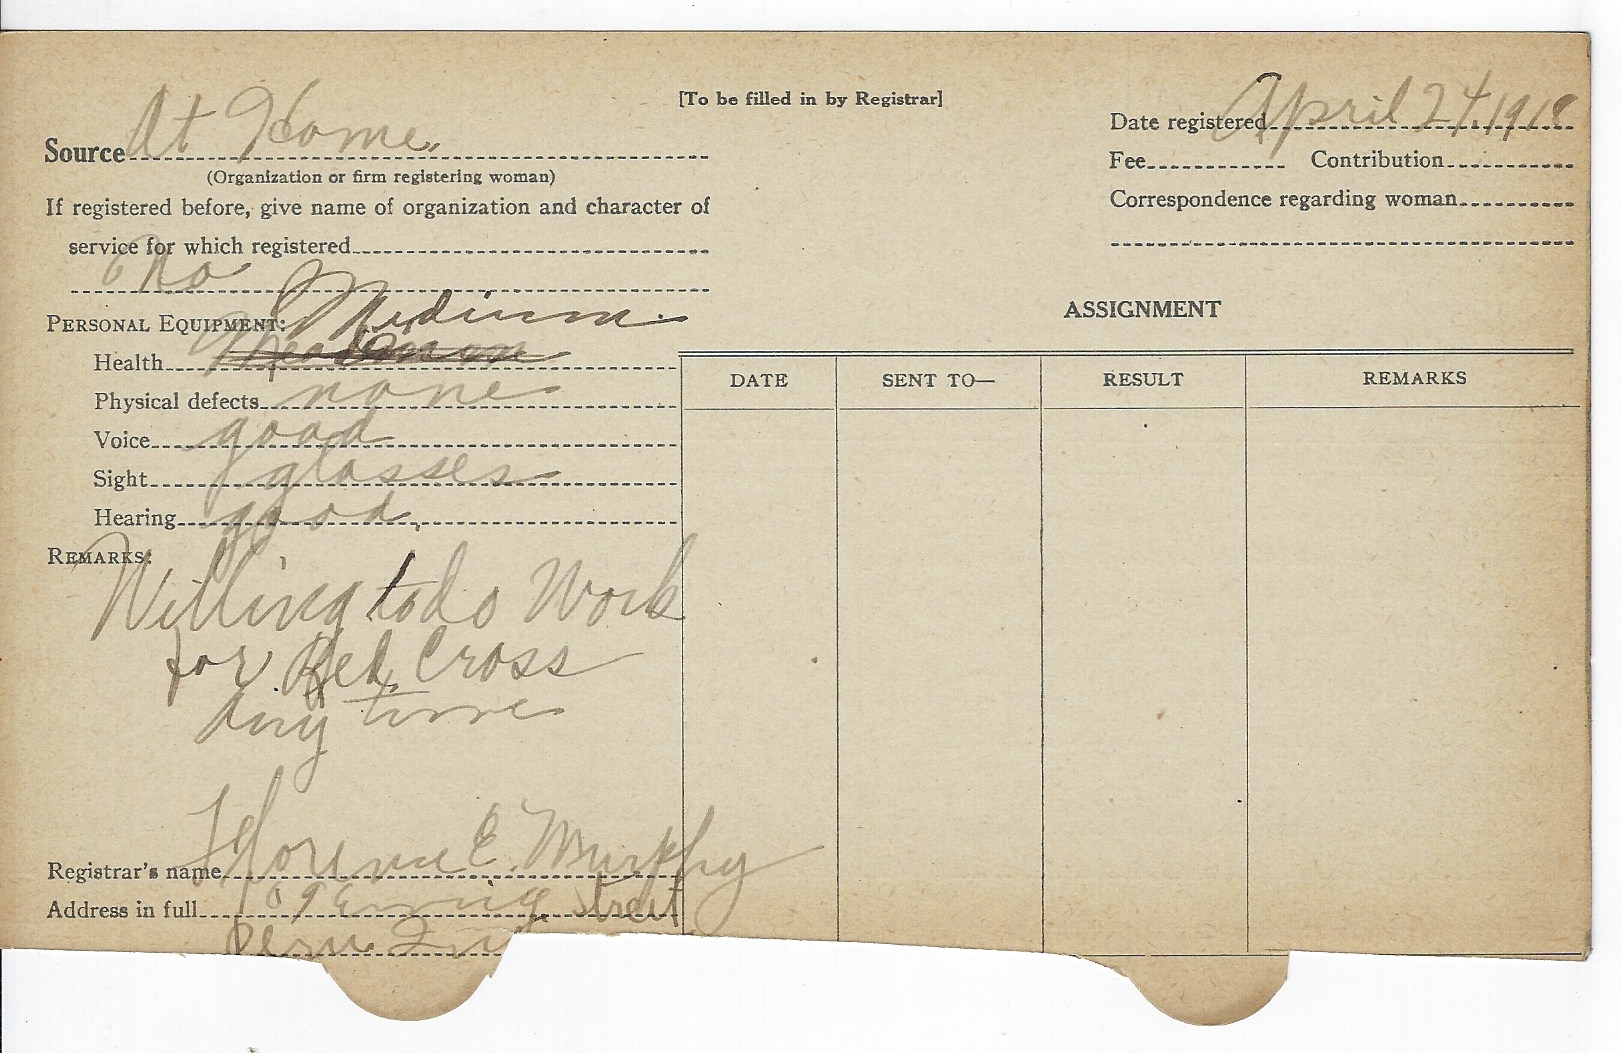 [To be filled in by Registrar]
Source At Home.
(Organization or firm registering woman)
If registered before, give name of organization and character of
service for which registered
No
PERSONAL EQUIPMENT: Medium.
Health
Physical defects none
Voice good
Sight glasses
Hearing good.
REMARKS:
Willing to do Work
for Red Cross
day time
Registrar's name Florence E. Murphy
Address in full 109 Ewing Street
Peru Ind
Date registered April 24, 1918
Fee Contribution
Correspondence regarding woman
ASSIGNMENT
DATE SENT TO— RESULT REMARKS